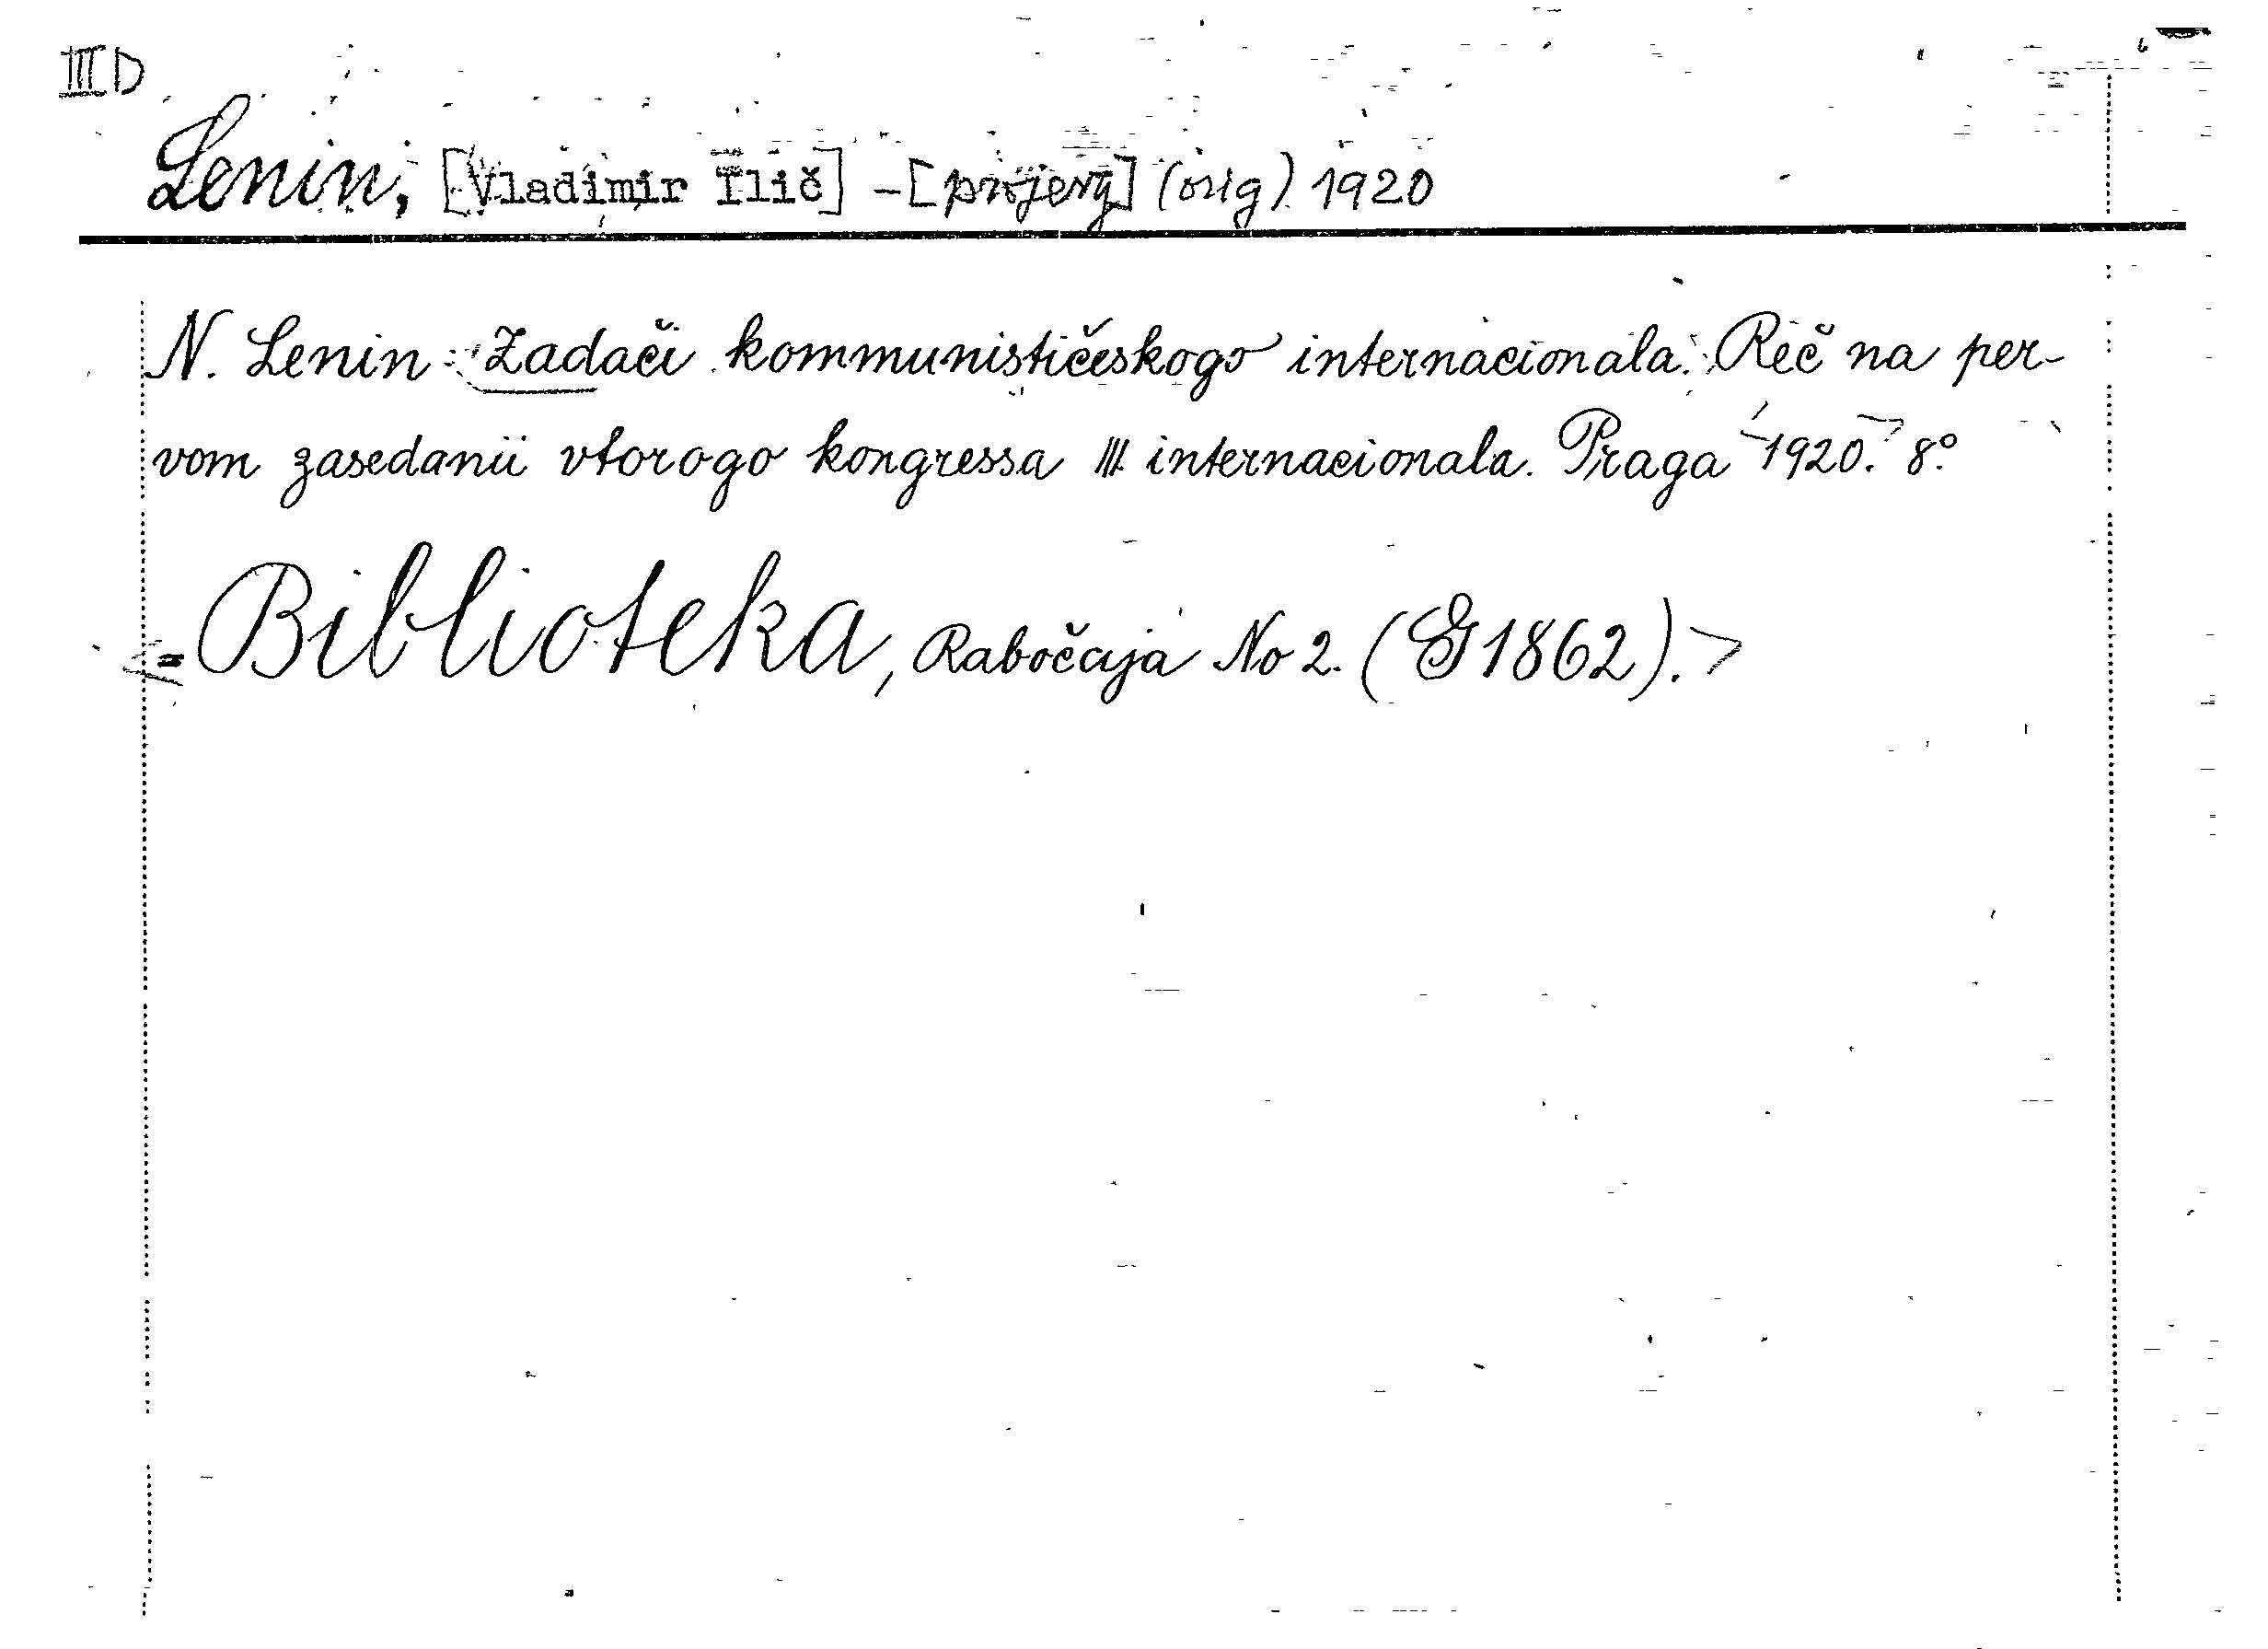 III D
Lenin, [Vladimir Ilič] - [projevy] (orig). 1920
N. Lenin Zadači kommunističeskogo internacionala. Reč na per-
vom zasedanii vtorogo kongressa III. internacionala. Praga 1920. 8°.
= Biblioteka, Rabočaja No 2. (G 1862).